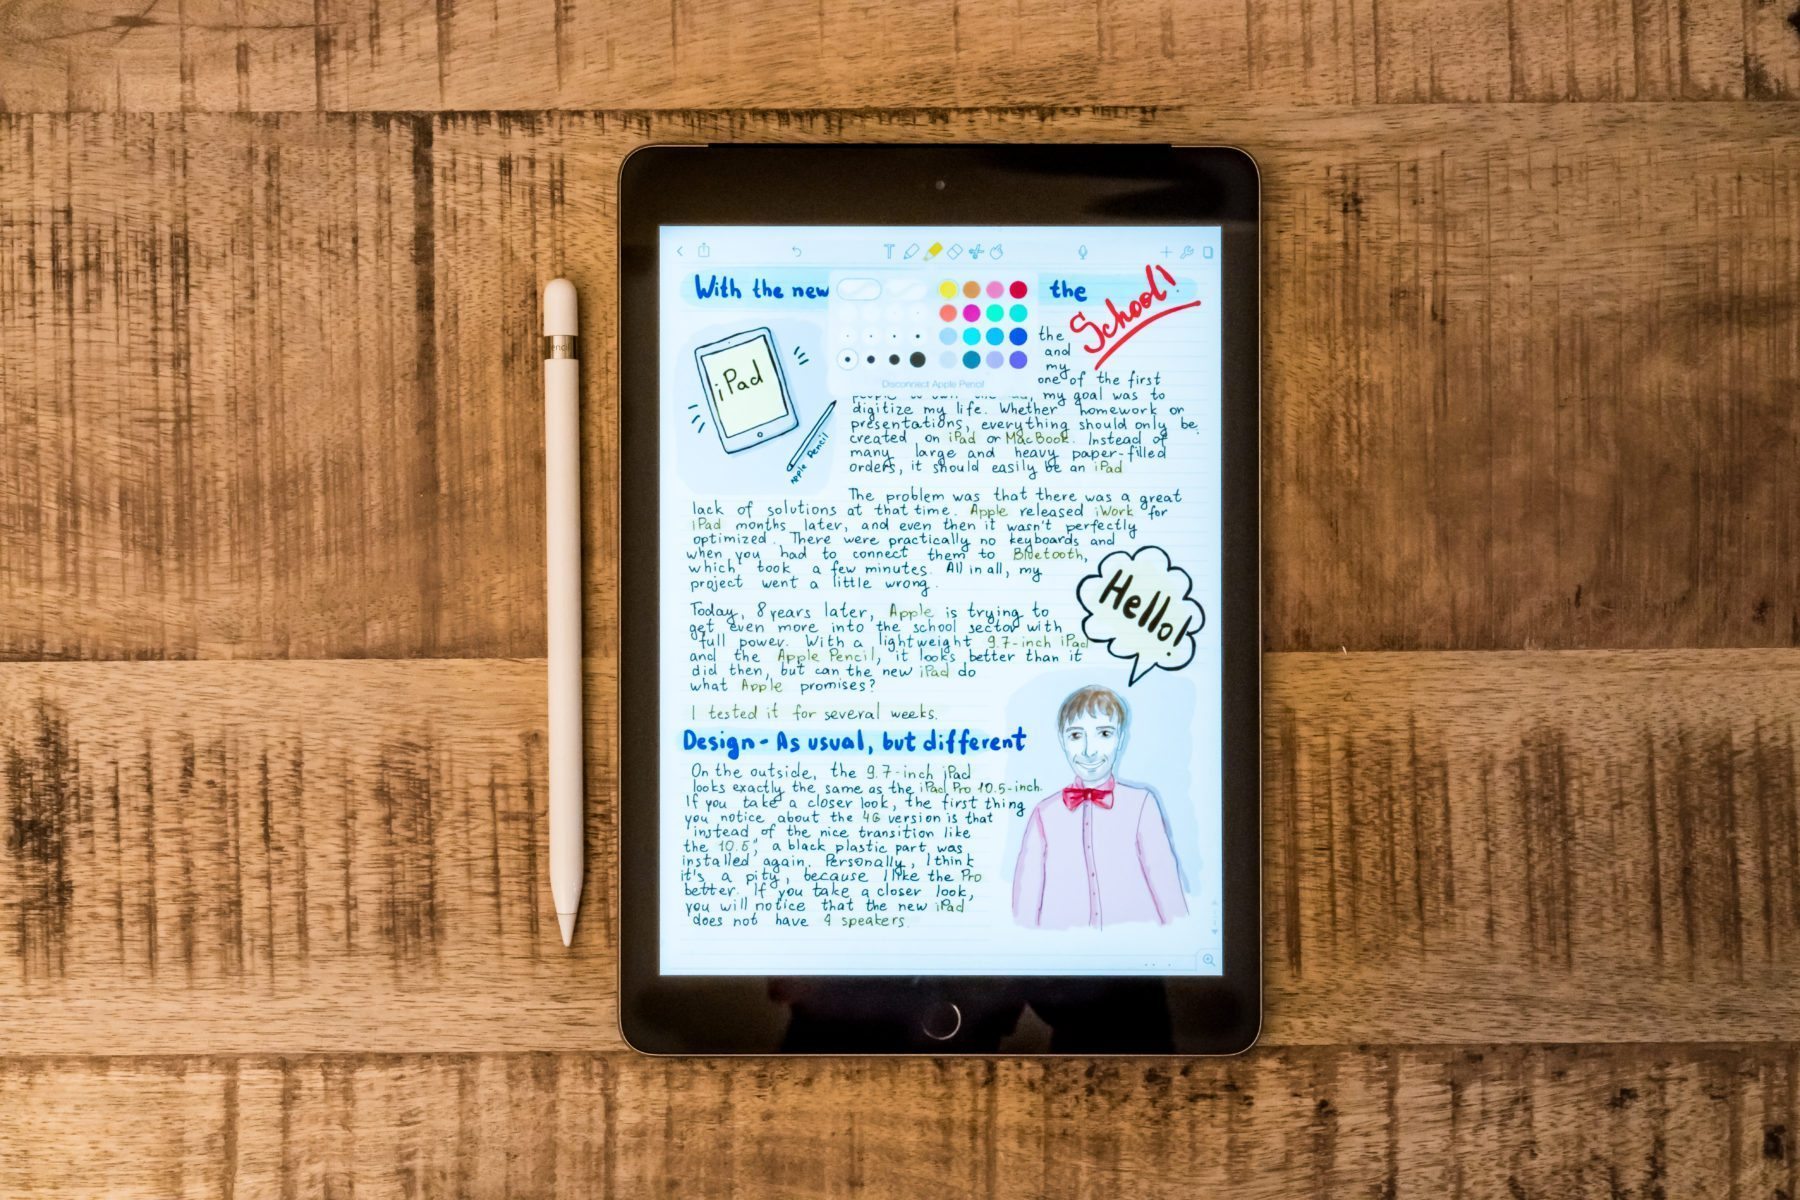 With the new
the
School!
the
and
my
one of the first
my goal was to
digitize my life. Whether homework or
presentations, everything should only be
created on iPad or MacBook. Instead of
many large and heavy paper-filled
orders, it should easily be an iPad
Disconnect Apple Pencil
iPad
Apple Pencil
encil
The problem was that there was a great
lack of solutions at that time. Apple released iWork for
iPad months later, and even then it wasn't perfectly
optimized. There were practically no keyboards and
when you had to connect them to Bluetooth,
which took a few minutes. All in all, my
project went a little wrong.
Today, 8 years later, Apple is trying to
get even more into the school sector with
full power. With a lightweight 9.7-inch iPad
and the Apple Pencil, it looks better than it
did then, but can the new iPad do
what Apple promises?
I tested it for several weeks.
Hello!
Design - As usual, but different
On the outside, the 9.7-inch iPad
looks exactly the same as the iPad Pro 10.5-inch.
If you take a closer look, the first thing
you notice about the 4G version is that
instead of the nice transition like
the 10.5", a black plastic part was
installed again. Personally, I think
it's a pity, because I like the Pro
better. If you take a closer look,
you will notice that the new iPad
does not have 4 speakers.